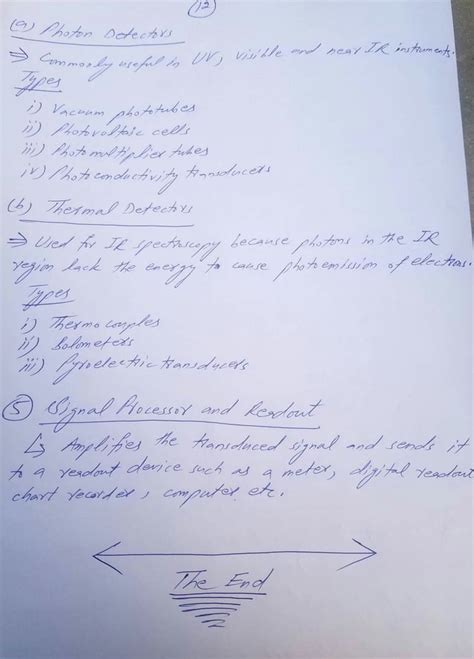 (12)
(a) Photon Detectors
⇒ Commonly useful in UV, visible and near IR instruments.
Types
i) Vacuum phototubes
ii) Photovoltaic cells
iii) Photomultiplier tubes
iv) Photoconductivity transducers
(b) Thermal Detectors
⇒ Used for IR spectroscopy because photons in the IR
region lack the energy to cause photoemission of electrons.
Types
i) Thermocouples
ii) Bolometers
iii) Pyroelectric transducers
(5) Signal Processor and Readout
↳ Amplifies the transduced signal and sends it
to a readout device such as a meter, digital readout
chart recorder, computer etc.
The End